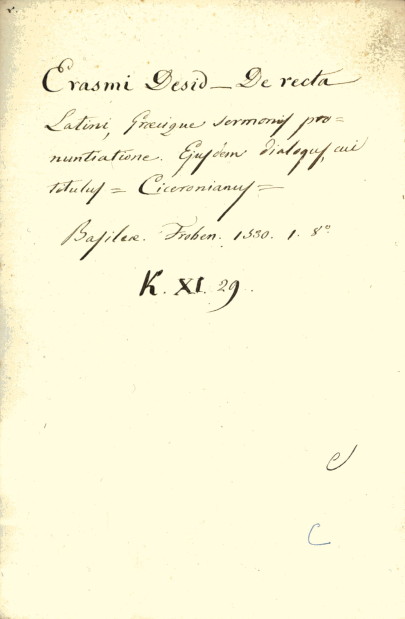 Erasmi Desid — De recta
Latini, Græcique sermonis pro=
nuntiatione. Ejusdem dialogus, cui
titulus = Ciceronianus =
Basileæ. Froben. 1530. 1. 8°
K. XI. 29.
C